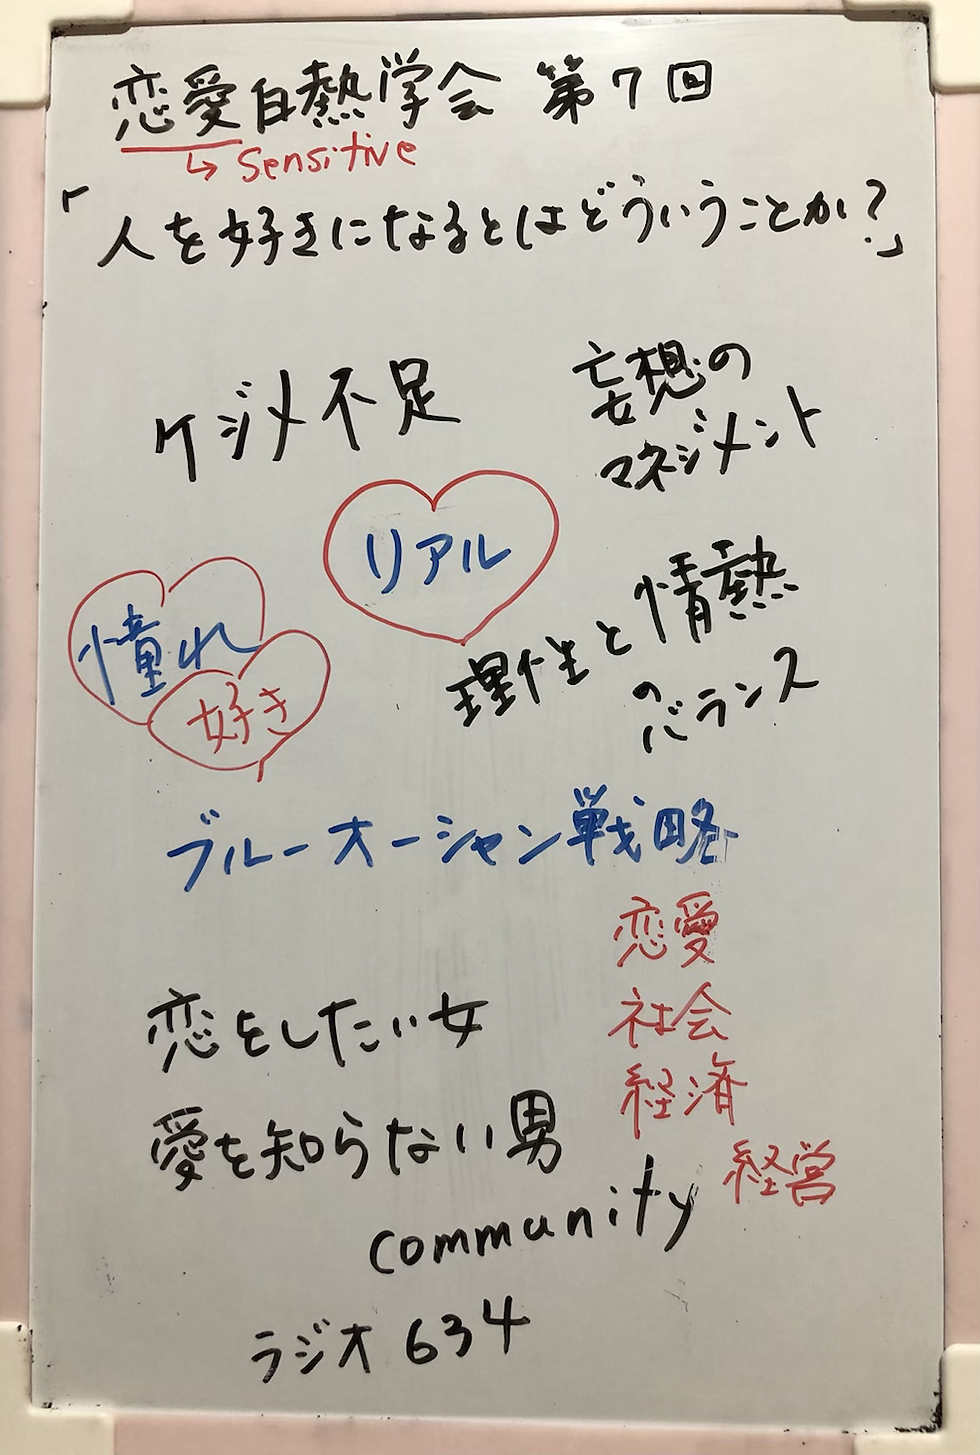 恋愛白熱学会 第7回
↳ Sensitive
「人を好きになるとはどういうことか?」
ケジメ不足
妄想の
マネジメント
リアル
憧れ
好き
理性と情熱
のバランス
ブルーオーシャン戦略
恋愛
社会
経済
経営
恋をしたい女
愛を知らない男
community
ラジオ634